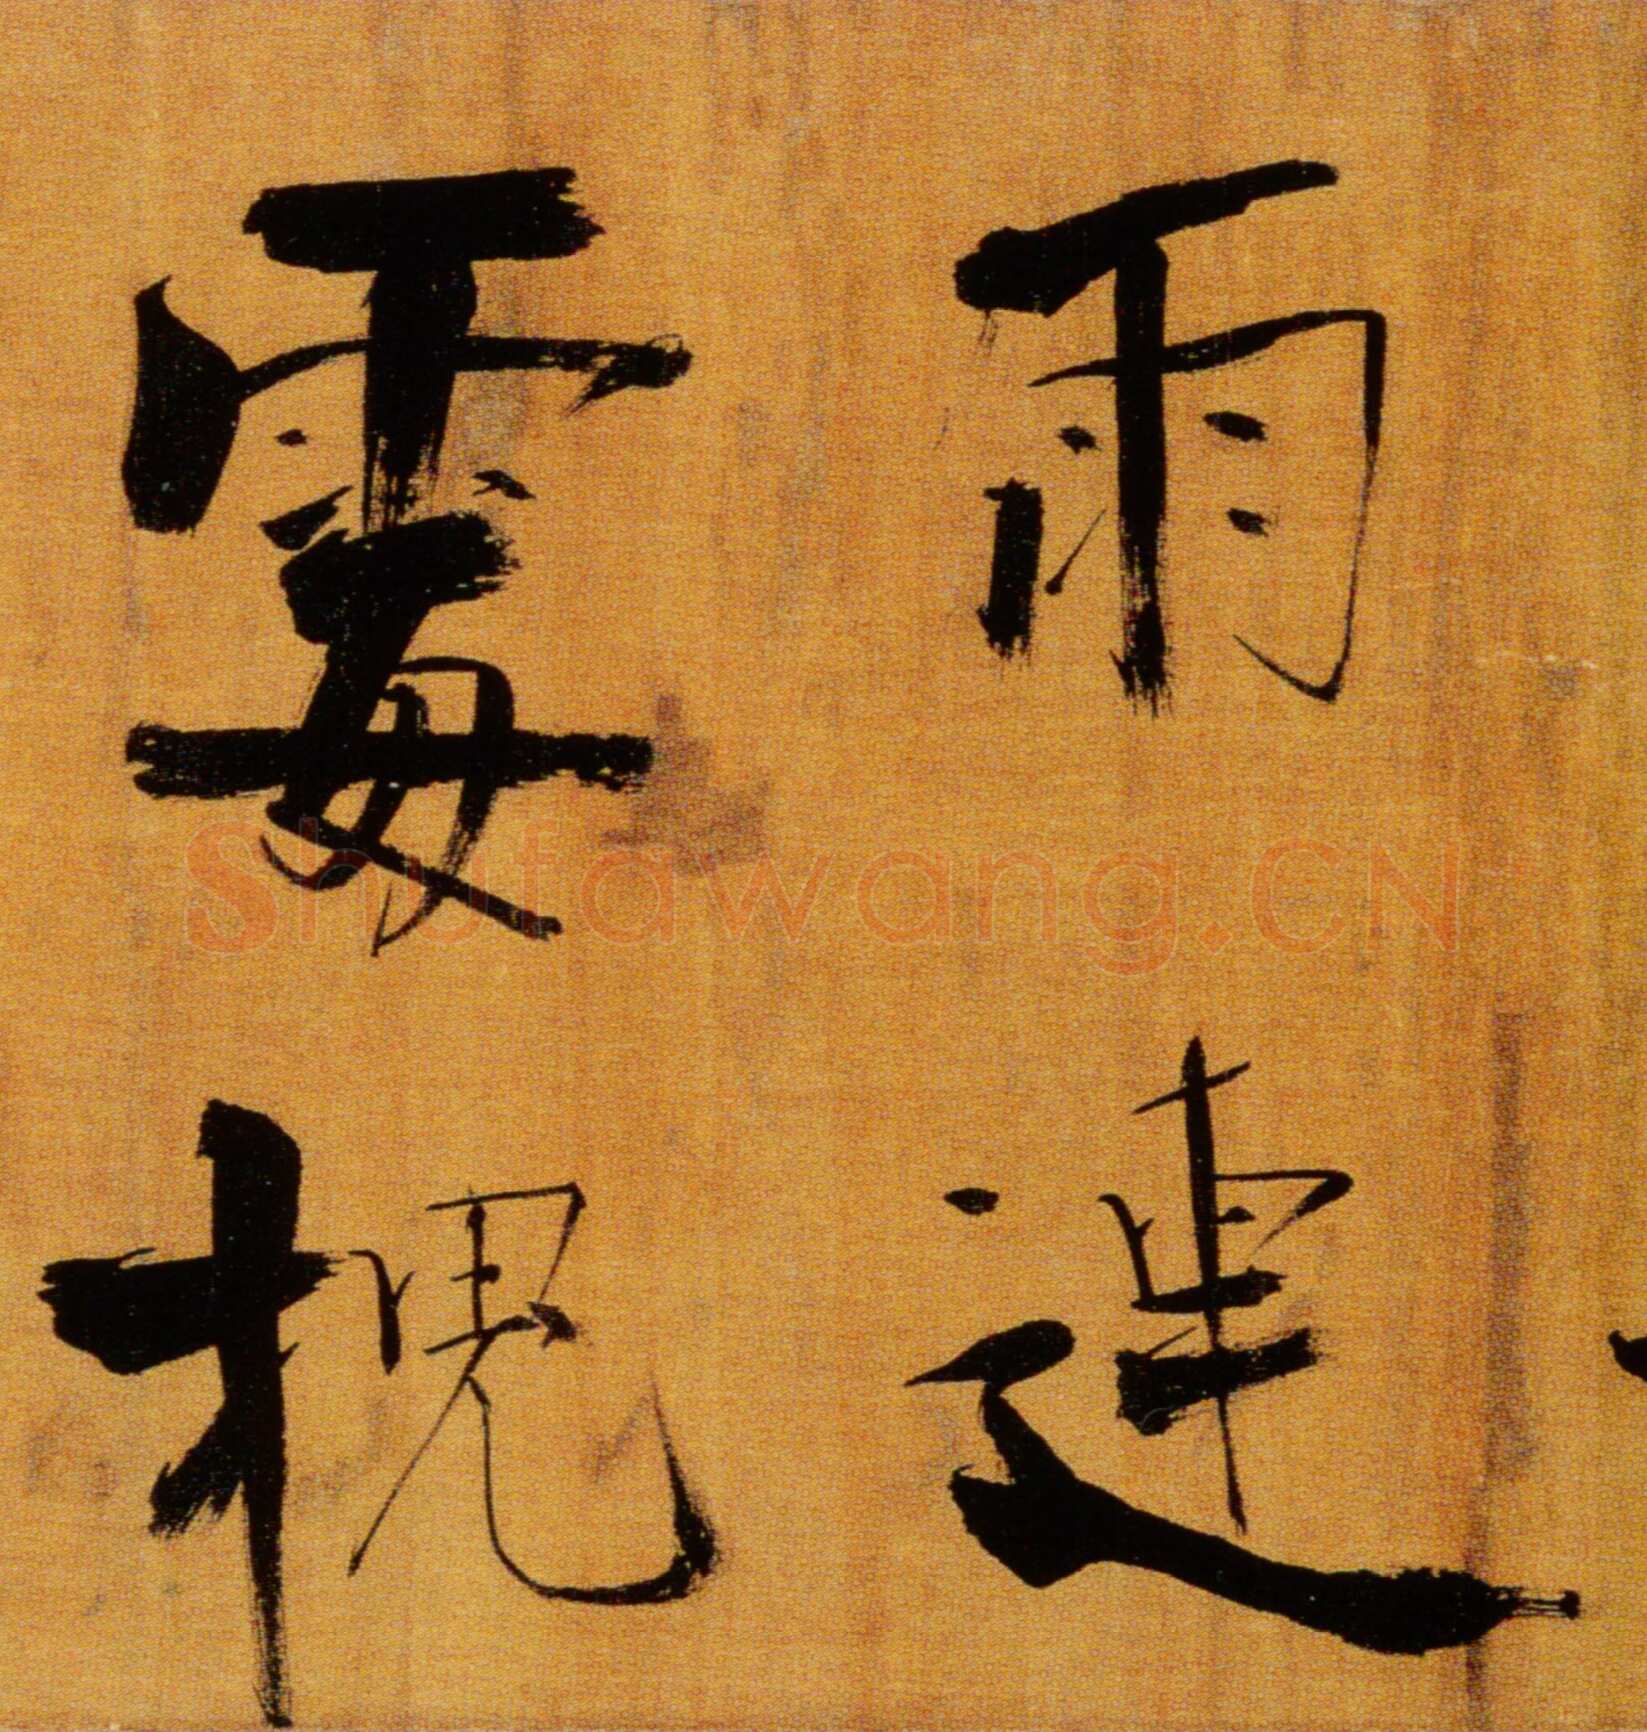 雨連
霉槐
Shufawang.CN